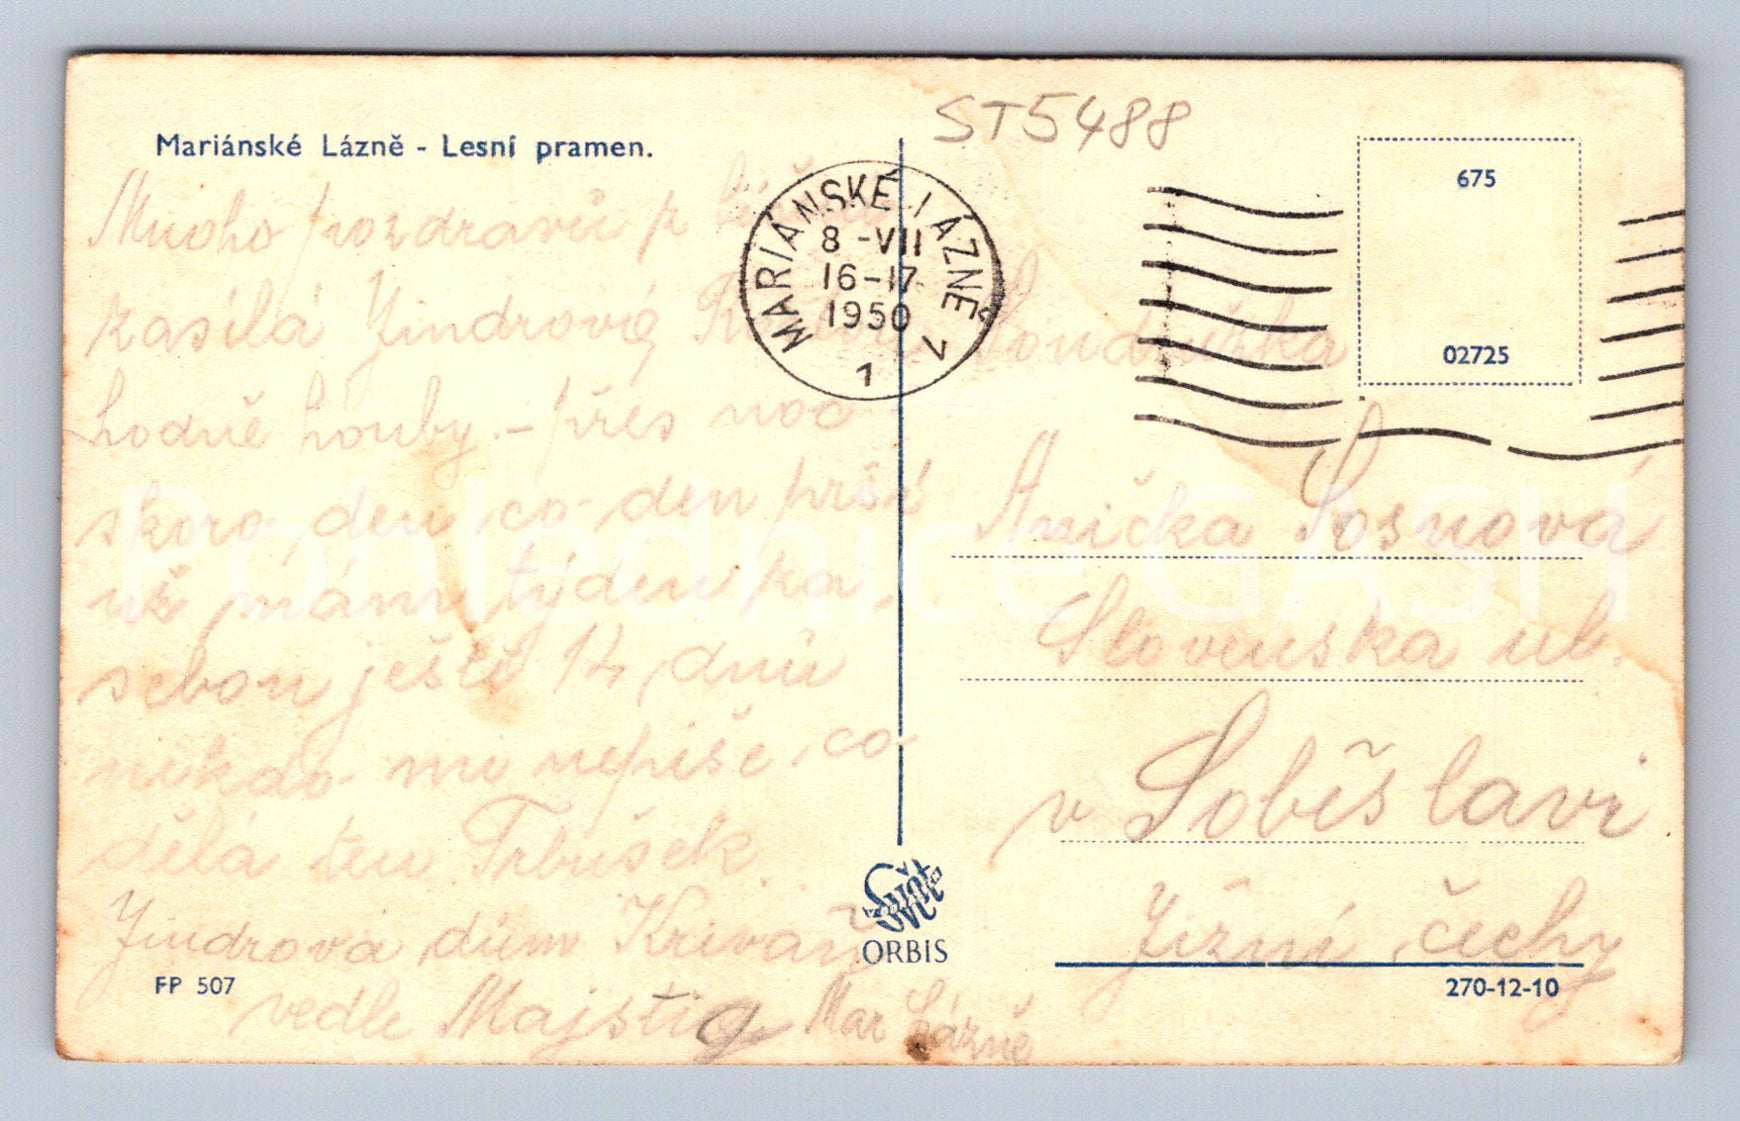 Mariánské Lázně - Lesní pramen.
Mnoho pozdravů z
zasílá Jindrová
hodně houby. - přes noc
skoro den co den prší
už mám týden za
sebou ještě 14 dnů
nikdo mi nepíše, co
dělá ten Trbušek.
Jindrová dům Křiváň
vedle Majštig Mar Lázně
FP 507
ST5488
MARIÁNSKÉ LÁZNĚ 7
8 -VII
16-17
1950
1
675
02725
Anička Sosnová
Slovenska ul.
v Soběslavi
Jižní čechy
ORBIS
270-12-10
Pohlednice GASH